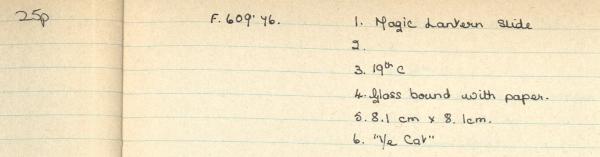 25p F.609'76. 1. Magic Lantern Slide
2.
3. 19th C
4. Glass bound with paper.
5. 8.1 cm x 8.1cm.
6. "Ye Cat"